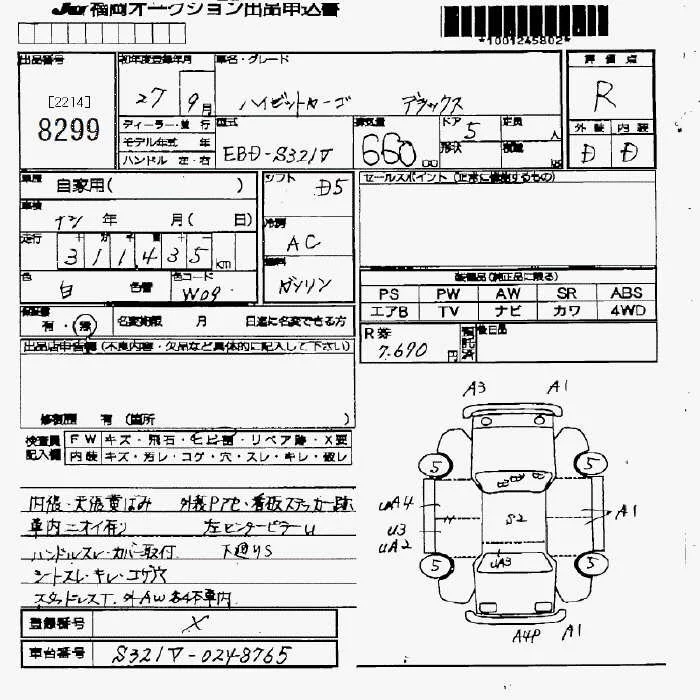 JU福岡オークション出品申込書
*1001245802*
出品番号
[2214]
8299
初年度登録年月
27 9月
車名・グレード
ハイゼットカーゴ デラックス
評価点
R
外装 内装
D D
ディーラー・並行
モデル年式 年
ハンドル 左・右
型式
EBD-S321V
排気量
660 cc
ドア 5
形状
定員 人
積載 kg
車歴 自家用( )
車検 年 月( 日)
走行 311435 km
色 白 色替
色コード W09
シフト D5
冷房 AC
燃料 ガソリン
セールスポイント(正常に稼働するもの)
装備品(純正品に限る)
PS PW AW SR ABS
エアB TV ナビ カワ 4WD
保証書 有・無
名変期限 月 日迄に名変できる方
R券 7.690 円
預託済
後日品
出品店申告欄(不良内容・欠品など具体的に記入して下さい)
修復歴 有(箇所 )
検査員記入欄
FW キズ・飛石・ヒビ歯・リペア跡・X要
内装 キズ・汚レ・コゲ・穴・スレ・キレ・破レ
内張・天張黄ばみ 外装Pアセ・看板ステッカー跡
車内ニオイ有り 左センターピラーU
ハンドルスレ・カバー取付 下廻りS
シートスレ・キレ・コゲ穴
スタッドレスT.外AW各4本車内
登録番号 X
車台番号 S321V-0248765
A3 A1
5 5
UA4
U3
UA2
S2
A1
UA3
5 5
A4P A1